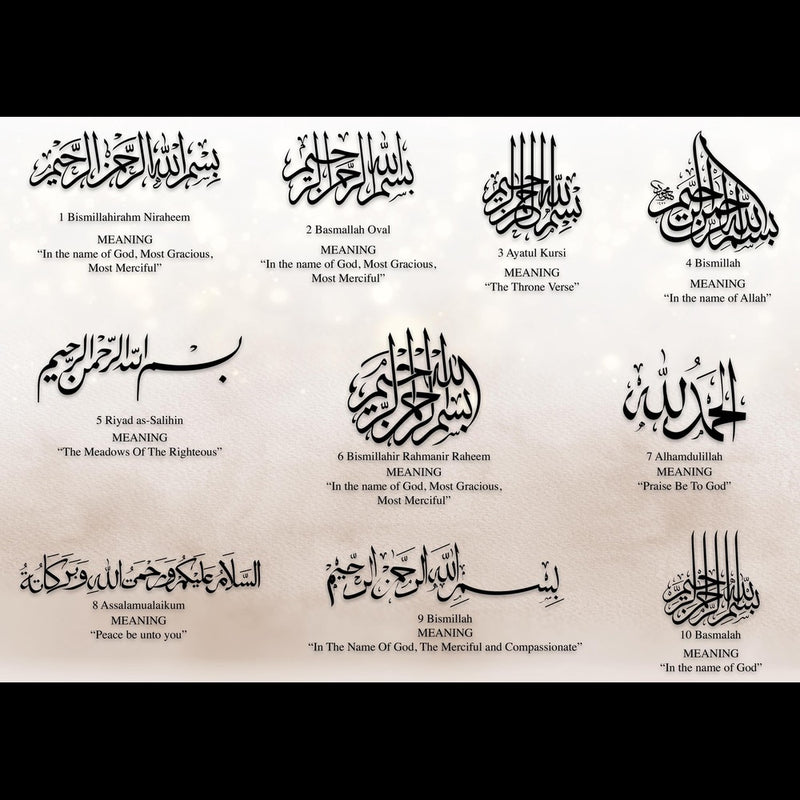 بسم الله الرحمن الرحيم
1 Bismillahirahm Niraheem
MEANING
“In the name of God, Most Gracious,
Most Merciful”
بسم الله الرحمن الرحيم
2 Basmallah Oval
MEANING
“In the name of God, Most Gracious,
Most Merciful”
بسم الله الرحمن الرحيم
3 Ayatul Kursi
MEANING
“The Throne Verse”
بسم الله الرحمن الرحيم
4 Bismillah
MEANING
“In the name of Allah”
بسم الله الرحمن الرحيم
5 Riyad as-Salihin
MEANING
“The Meadows Of The Righteous”
بسم الله الرحمن الرحيم
6 Bismillahir Rahmanir Raheem
MEANING
“In the name of God, Most Gracious,
Most Merciful”
الحمد لله
7 Alhamdulillah
MEANING
“Praise Be To God”
السلام عليكم ورحمة الله وبركاته
8 Assalamualaikum
MEANING
“Peace be unto you”
بسم الله الرحمن الرحيم
9 Bismillah
MEANING
“In The Name Of God, The Merciful and Compassionate”
بسم الله الرحمن الرحيم
10 Basmalah
MEANING
“In the name of God”